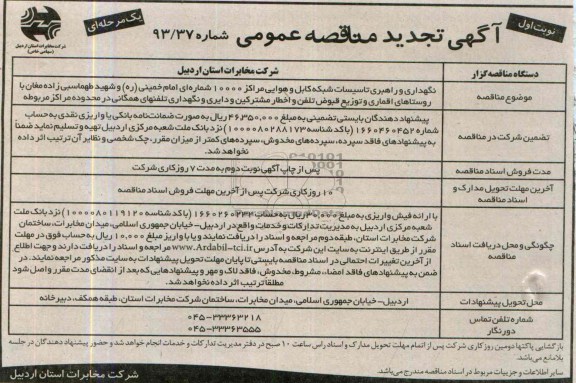 نوبت اول
آگهی تجدید مناقصه عمومی شماره ۹۳/۳۷
یک مرحله ای
شرکت مخابرات استان اردبیل
(سهامی خاص)
دستگاه مناقصه گزار
شرکت مخابرات استان اردبیل
موضوع مناقصه
نگهداری و راهبری تاسیسات شبکه کابل و هوایی مراکز ۱۰۰۰۰ شماره ای امام خمینی (ره) و شهید طهماسبی زاده مغان با
روستاهای اقماری و توزیع قبوض تلفن و اخطار مشترکین و دایری و نگهداری تلفنهای همگانی در محدوده مراکز مربوطه
تضمین شرکت در مناقصه
پیشنهاد دهندگان بایستی تضمینی به مبلغ ۴۶۳۵۰۰۰۰ ریال به صورت ضمانت نامه بانکی یا واریزی نقدی به حساب
شماره ۱۶۶۰۴۶۰۴۵۲ (با کد شناسه ۱۰۰۰۰۸۰۲۸۸۱۷۳) نزد بانک ملت شعبه مرکزی اردبیل تهیه و تسلیم نماید ضمناً
به پیشنهادهای فاقد سپرده، سپرده‌های مخدوش، سپرده‌های کمتر از میزان مقرر، چک شخصی و نظایر آن ترتیب اثر داده
نخواهد شد.
مدت فروش اسناد مناقصه
پس از چاپ آگهی نوبت دوم به مدت ۷ روز کاری شرکت
آخرین مهلت تحویل مدارک و
اسناد مناقصه
۱۰ روز کاری شرکت پس از آخرین مهلت فروش اسناد مناقصه
چگونگی و محل دریافت اسناد
مناقصه
با ارائه فیش واریزی به مبلغ ریال به حساب (با کد شناسه ۱۰۰۰۰۸۰۱۱۹۱۲۰) نزد بانک ملت
شعبه مرکزی اردبیل به مدیریت تدارکات و خدمات واقع در اردبیل - خیابان جمهوری اسلامی، میدان مخابرات، ساختمان
شرکت مخابرات استان، طبقه دوم مراجعه و اسناد را دریافت نمایند و یا با واریز مبلغ ۱۰.۰۰۰ ریال به حساب فوق در مهلت
مقرر از طریق اینترنت به سایت این شرکت به آدرس www.Ardabil-tci.ir مراجعه و اسناد را دریافت دارند و جهت اطلاع
از آخرین تغییرات احتمالی در اسناد مناقصه بایستی تا پایان مهلت تحویل پیشنهادات به سایت مذکور مراجعه نمایند. در
ضمن به پیشنهادهای فاقد امضاء، مشروط، مخدوش، فاقد لاک و مهر و پیشنهادهایی که بعد از انقضای مدت مقرر واصل شود
مطلقا ترتیب اثر داده نخواهد شد.
محل تحویل پیشنهادات
اردبیل - خیابان جمهوری اسلامی، میدان مخابرات، ساختمان شرکت مخابرات استان، طبقه همکف، دبیرخانه
شماره تلفن تماس
۰۴۵-۳۳۳۶۳۲۱۸
دورنگار
۰۴۵-۳۳۳۶۳۵۵۵
بازگشایی پاکتها دومین روز کاری شرکت پس از اتمام مهلت تحویل مدارک و اسناد راس ساعت ۱۰ صبح در دفتر مدیریت تدارکات و خدمات انجام خواهد شد و حضور پیشنهاد دهندگان در جلسه
بلامانع می باشد.
سایر اطلاعات و جزییات مربوط در اسناد مناقصه مندرج می باشد.
شرکت مخابرات استان اردبیل